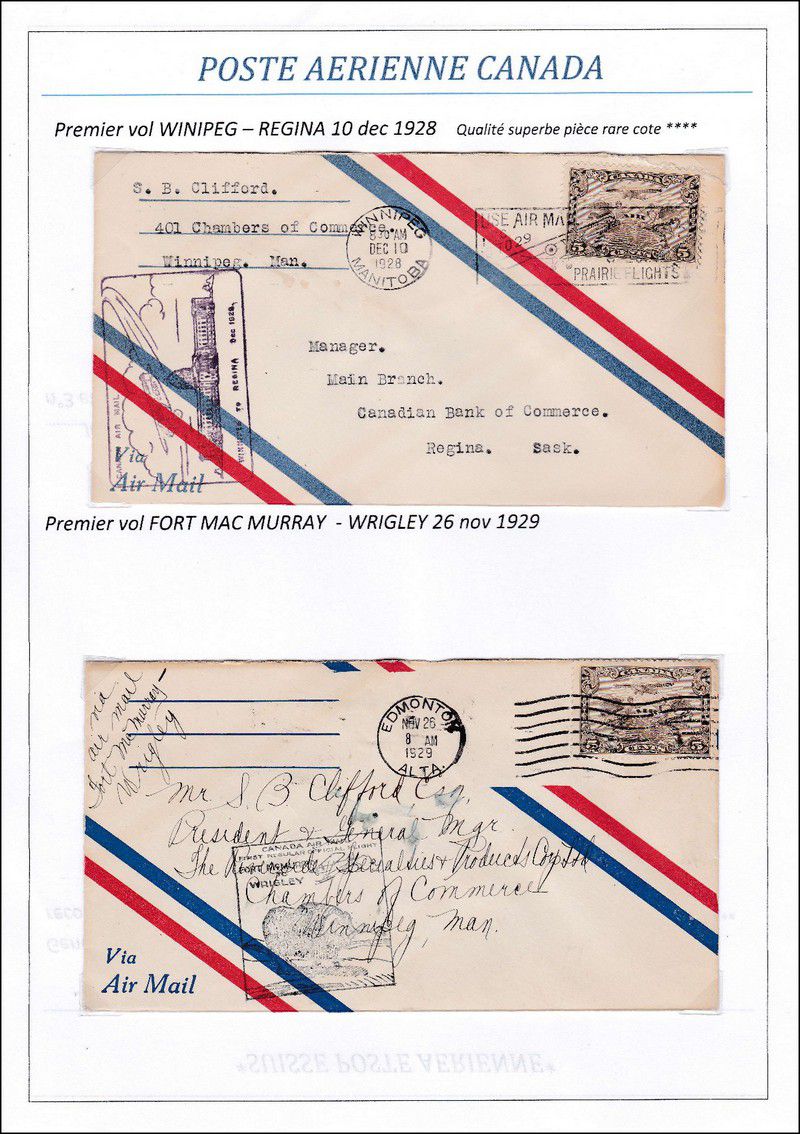 POSTE AERIENNE CANADA
Premier vol WINIPEG – REGINA 10 dec 1928 Qualité superbe pièce rare cote ****
S. B. Clifford.
401 Chambers of Commerce.
Winnipeg. Man.
WINNIPEG
8 30 AM
DEC 10
1928
MANITOBA
USE AIR MA
PRAIRIE FLIGHTS
5 5
CANADA AIR MAIL
WINNIPEG TO REGINA Dec 1928.
Manager.
Main Branch.
Canadian Bank of Commerce.
Regina. Sask.
Via
Air Mail
Premier vol FORT MAC MURRAY - WRIGLEY 26 nov 1929
via
air mail
Fort McMurray–
Wrigley
EDMONTON
NOV 26
8 AM
1929
ALTA.
5 5
Mr S. B Clifford Esq.
President & General Mgr.
The Specialties & Products Corp Ltd
Chambers of Commerce
Winnipeg, Man.
CANADA AIR MAIL
FIRST REGULAR OFFICIAL FLIGHT
FORT McMURRAY
TO
WRIGLEY
Via
Air Mail
*SUISSE POSTE AERIENNE*